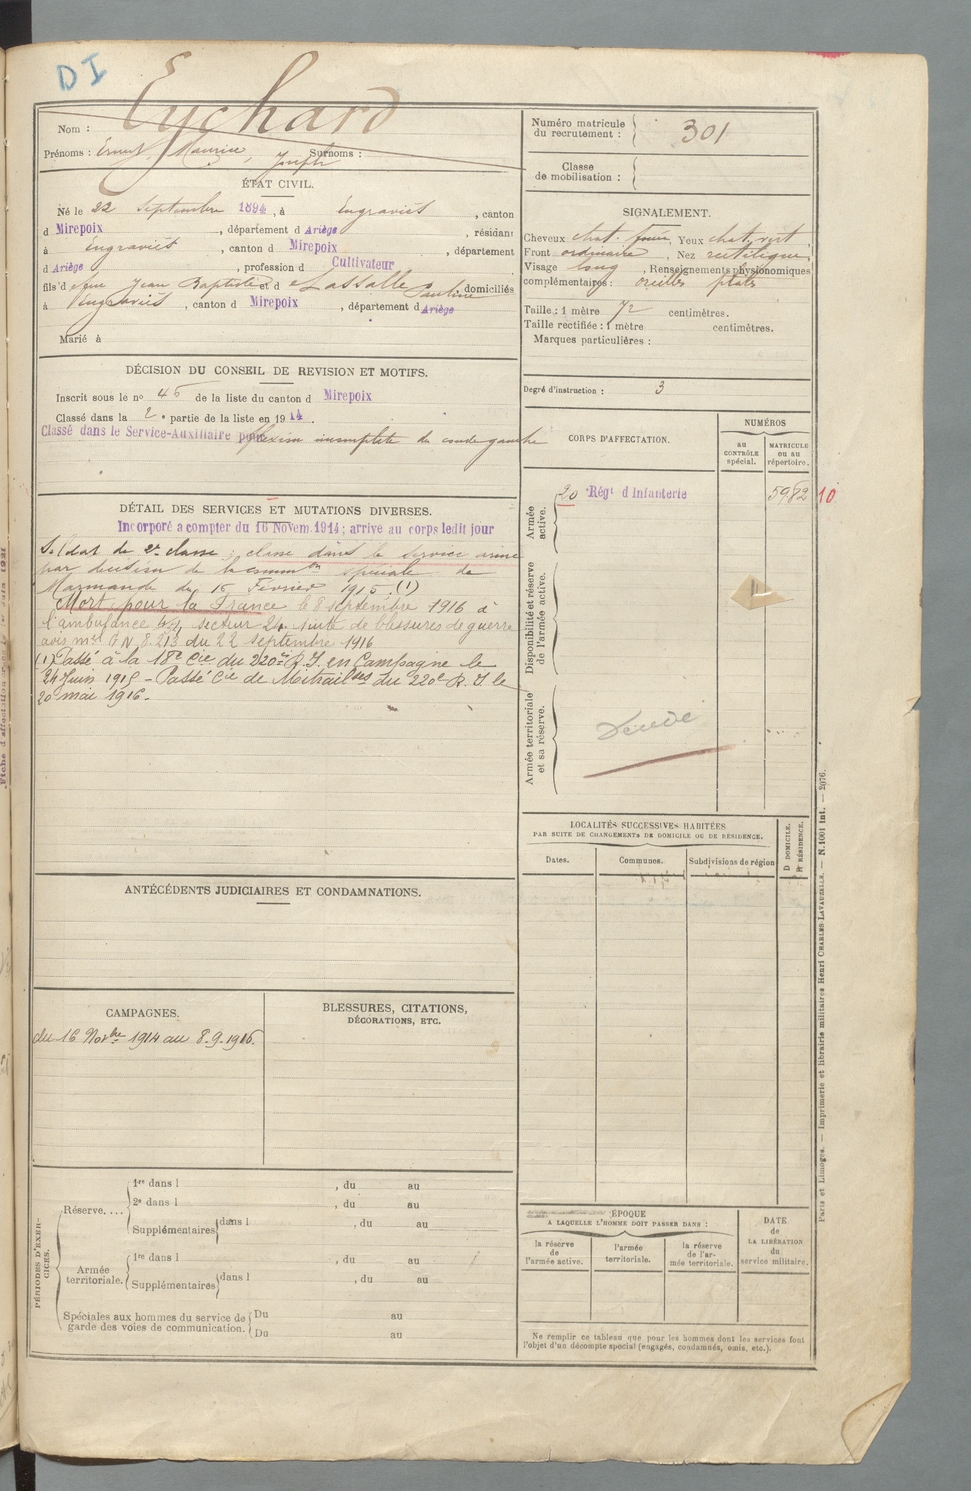 DI
Nom : Eychard
Prénoms : Ernest, Maurice, Joseph Surnoms :
ÉTAT CIVIL.
Né le 22 Septembre 1894, à Engraviès, canton
d Mirepoix, département d Ariège, résidant
à Engraviès, canton d Mirepoix, département
d Ariège, profession d Cultivateur
fils d feu Jean Baptiste et d Lassalle Pauline domiciliés
à Engraviès, canton d Mirepoix, département d Ariège
Marié à
DÉCISION DU CONSEIL DE REVISION ET MOTIFS.
Inscrit sous le no 45 de la liste du canton d Mirepoix
Classé dans la 2e partie de la liste en 1914.
Classé dans le Service-Auxiliaire pour flexion incomplète du coude gauche
DÉTAIL DES SERVICES ET MUTATIONS DIVERSES.
Incorporé a compter du 16 Novem. 1914 ; arrive au corps ledit jour
Soldat de 2e classe ; classé dans le service armé
par décision de la common spéciale de
Marmande du 15 Février 1915. (1)
Mort pour la France le 8 septembre 1916 à
l'ambulance secteur 24 suite de blessures de guerre
avis mel G N. 8.213 du 22 septembre 1916
(1) Passé à la 18e Cie du 220e R.I. en Campagne le
24 Juin 1915 - Passé Cie de Mitrailses du 220e R.I. le
20 mai 1916.
ANTÉCÉDENTS JUDICIAIRES ET CONDAMNATIONS.
CAMPAGNES.
du 16 Novbre 1914 au 8.9.1916.
BLESSURES, CITATIONS,
DÉCORATIONS, ETC.
PÉRIODES D'EXERCICES.
Réserve....
1re dans l , du au
2e dans l , du au
Supplémentaires dans l , du au
Armée territoriale.
1re dans l , du au
Supplémentaires dans l , du au
Spéciales aux hommes du service de
garde des voies de communication.
Du au
Du au
Numéro matricule
du recrutement : 301
Classe
de mobilisation :
SIGNALEMENT.
Cheveux chat. foncé, Yeux chat. vert,
Front ordinaire, Nez rectiligne,
Visage long, Renseignements physionomiques
complémentaires : oreilles plates
Taille : 1 mètre 72 centimètres.
Taille rectifiée : 1 mètre centimètres.
Marques particulières :
Degré d'instruction : 3
CORPS D'AFFECTATION.
NUMÉROS
au CONTRÔLE spécial.
MATRICULE ou au répertoire.
Armée active.
20 Régt d Infanterie 5982 10
Disponibilité et réserve de l'armée active.
Armée territoriale et sa réserve.
Décédé
LOCALITÉS SUCCESSIVES HABITÉES
PAR SUITE DE CHANGEMENTS DE DOMICILE OU DE RÉSIDENCE.
Dates. Communes. Subdivisions de région
D DOMICILE.
R RÉSIDENCE.
ÉPOQUE
A LAQUELLE L'HOMME DOIT PASSER DANS :
la réserve de l'armée active.
l'armée territoriale.
la réserve de l'armée territoriale.
DATE
de
LA LIBÉRATION
du
service militaire.
Ne remplir ce tableau que pour les hommes dont les services font
l'objet d'un décompte spécial (engagés, condamnés, omis, etc.).
Paris et Limoges. — Imprimerie et librairie militaires Henri CHARLES-LAVAUZELLE. — N. 1001 int. — 2976.